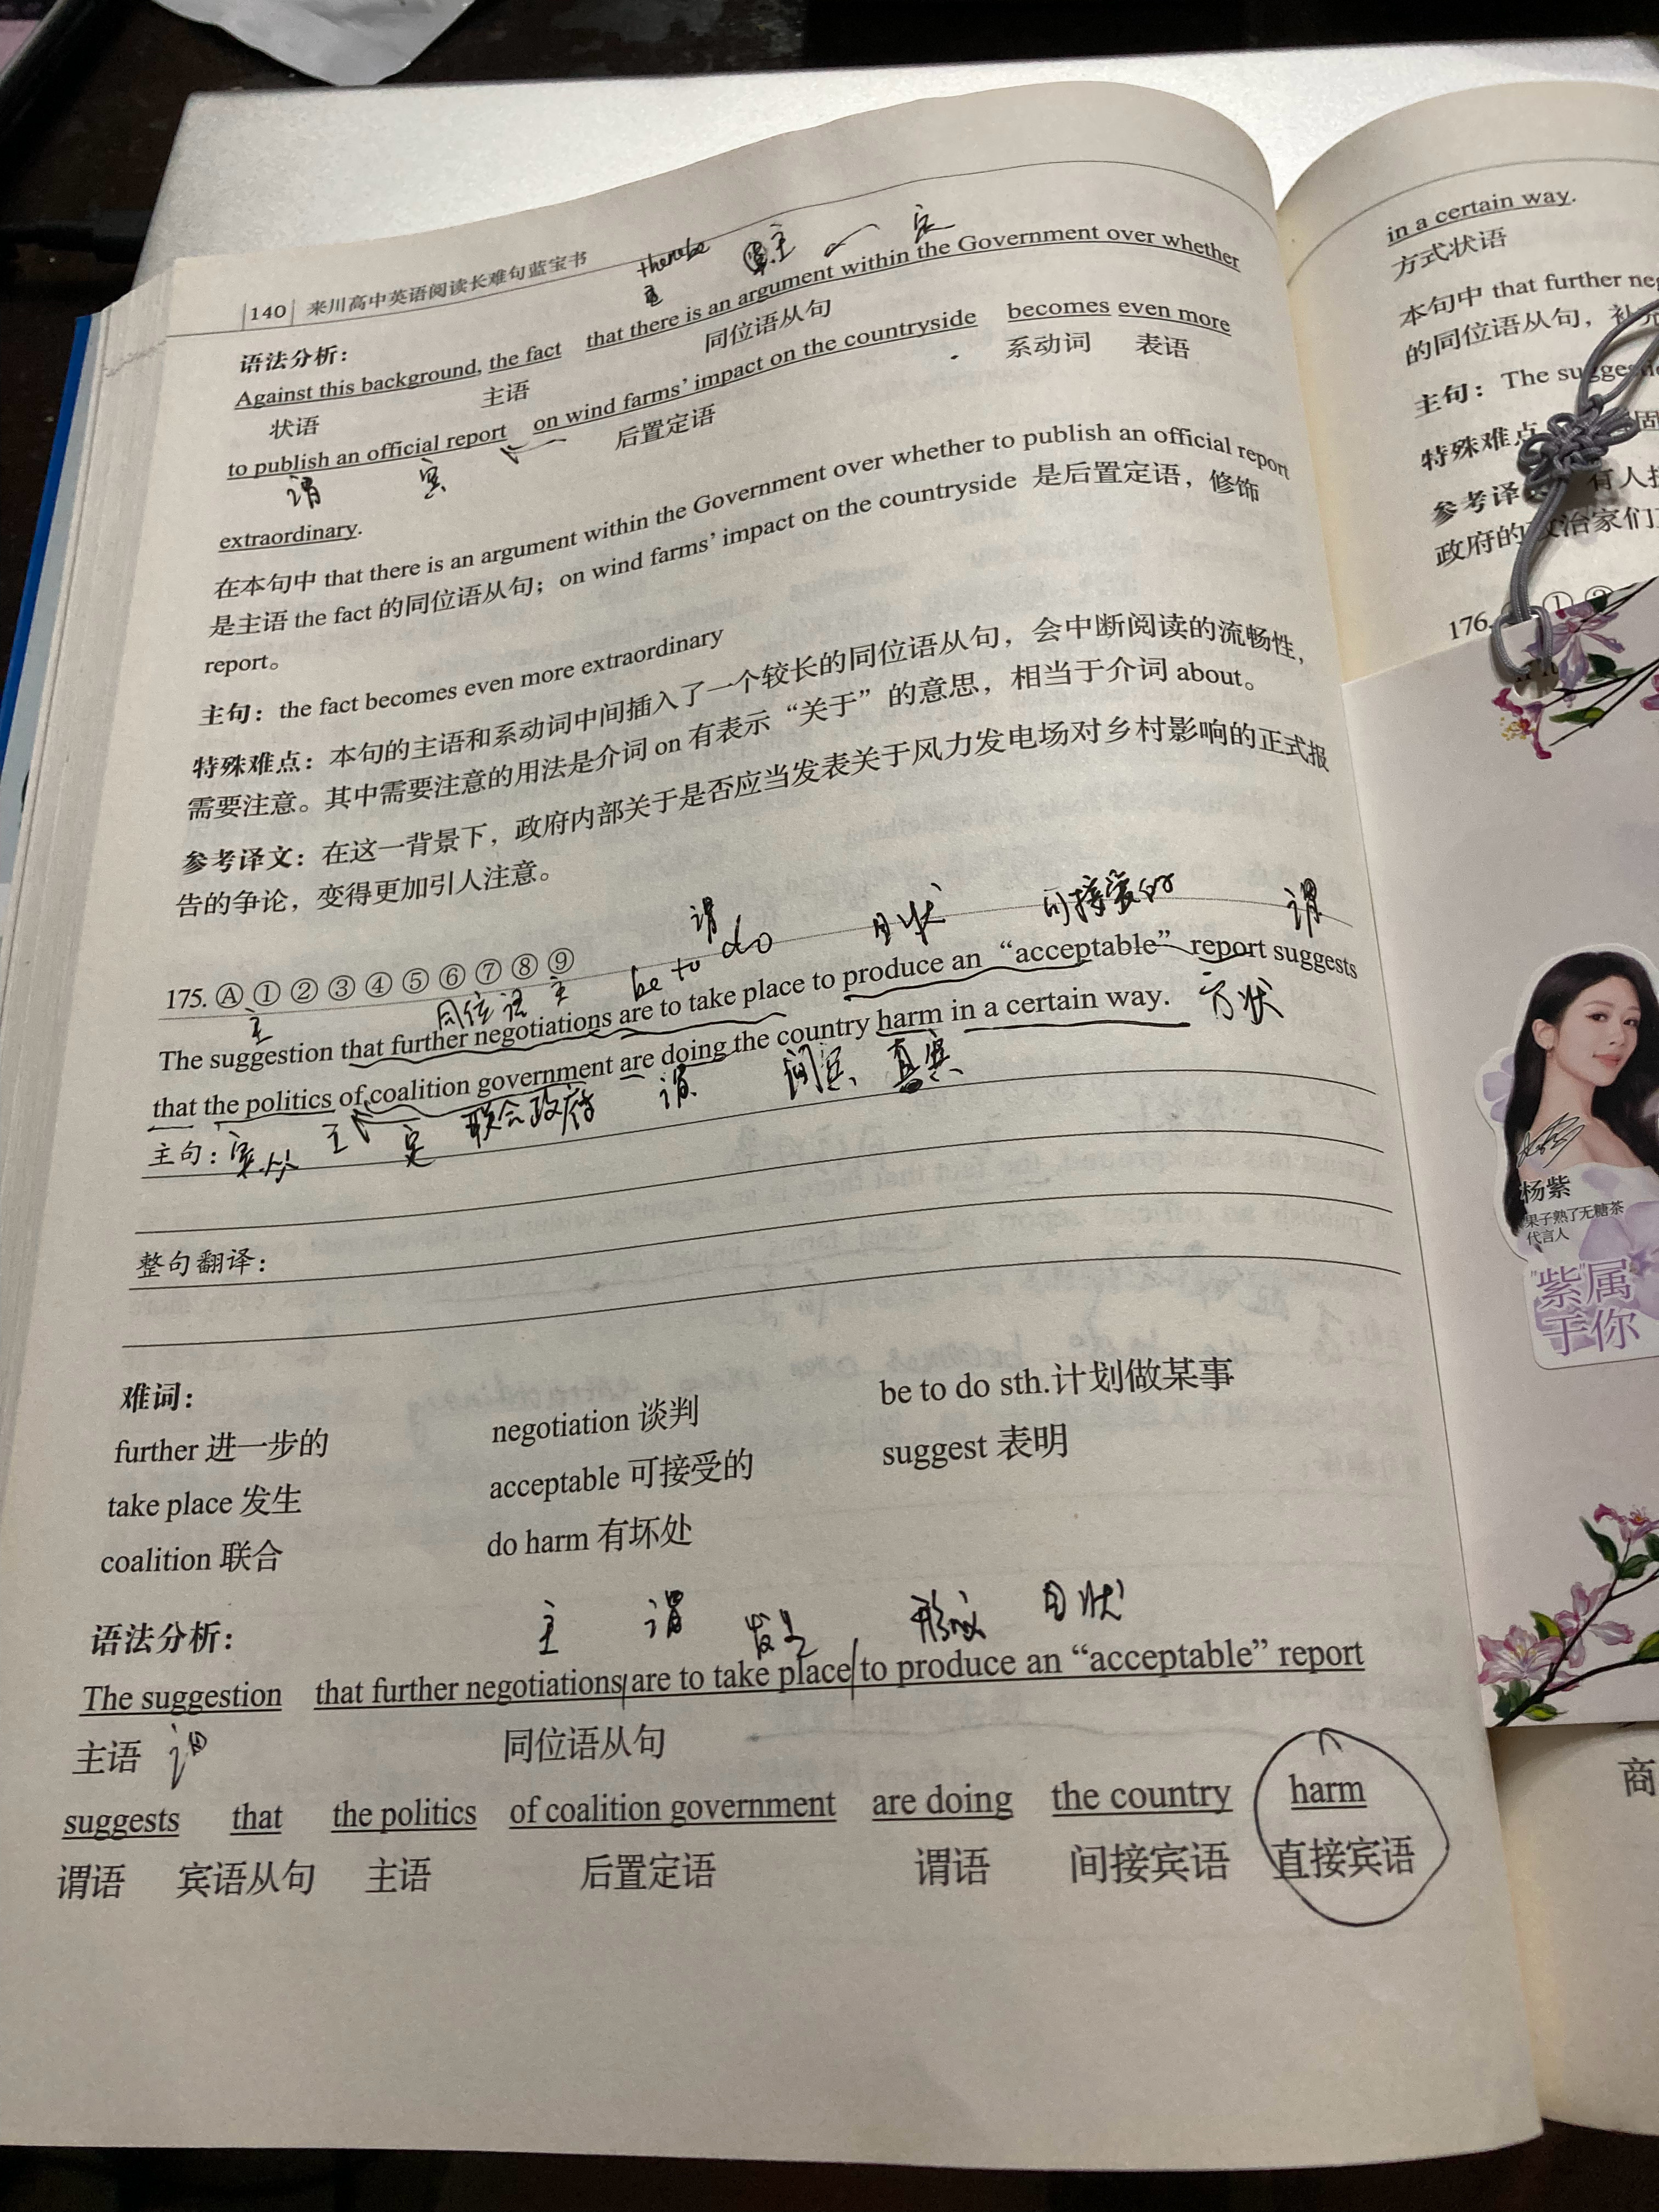 140 来川高中英语阅读长难句蓝宝书
there be 主 定
语法分析：
Against this background, the fact that there is an argument within the Government over whether
状语 主语 同位语从句
to publish an official report on wind farms’ impact on the countryside becomes even more
谓 宾 后置定语 系动词 表语
extraordinary.
在本句中 that there is an argument within the Government over whether to publish an official report
是主语 the fact 的同位语从句；on wind farms’ impact on the countryside 是后置定语，修饰
report。
主句：the fact becomes even more extraordinary
特殊难点：本句的主语和系动词中间插入了一个较长的同位语从句，会中断阅读的流畅性，
需要注意。其中需要注意的用法是介词 on 有表示“关于”的意思，相当于介词 about。
参考译文：在这一背景下，政府内部关于是否应当发表关于风力发电场对乡村影响的正式报
告的争论，变得更加引人注意。
175. Ⓐ ① ② ③ ④ ⑤ ⑥ ⑦ ⑧ ⑨
主 同位语 主 be to do 谓 目状 可接受的 谓
The suggestion that further negotiations are to take place to produce an “acceptable” report suggests
that the politics of coalition government are doing the country harm in a certain way. 方状
主句：宾从 主 定 联合政府 谓 间宾 直宾
整句翻译：
难词：
further 进一步的 negotiation 谈判 be to do sth.计划做某事
take place 发生 acceptable 可接受的 suggest 表明
coalition 联合 do harm 有坏处
语法分析：
主 谓 发生 目状
The suggestion that further negotiations are to take place to produce an “acceptable” report
主语 同位语从句
suggests that the politics of coalition government are doing the country harm
谓语 宾语从句 主语 后置定语 谓语 间接宾语 直接宾语
in a certain way.
方式状语
本句中 that further
的同位语从句，
主句：The
特殊难点
参考译
政府的
176.
杨紫
果子熟了无糖茶
代言人
"紫"属
于你
商